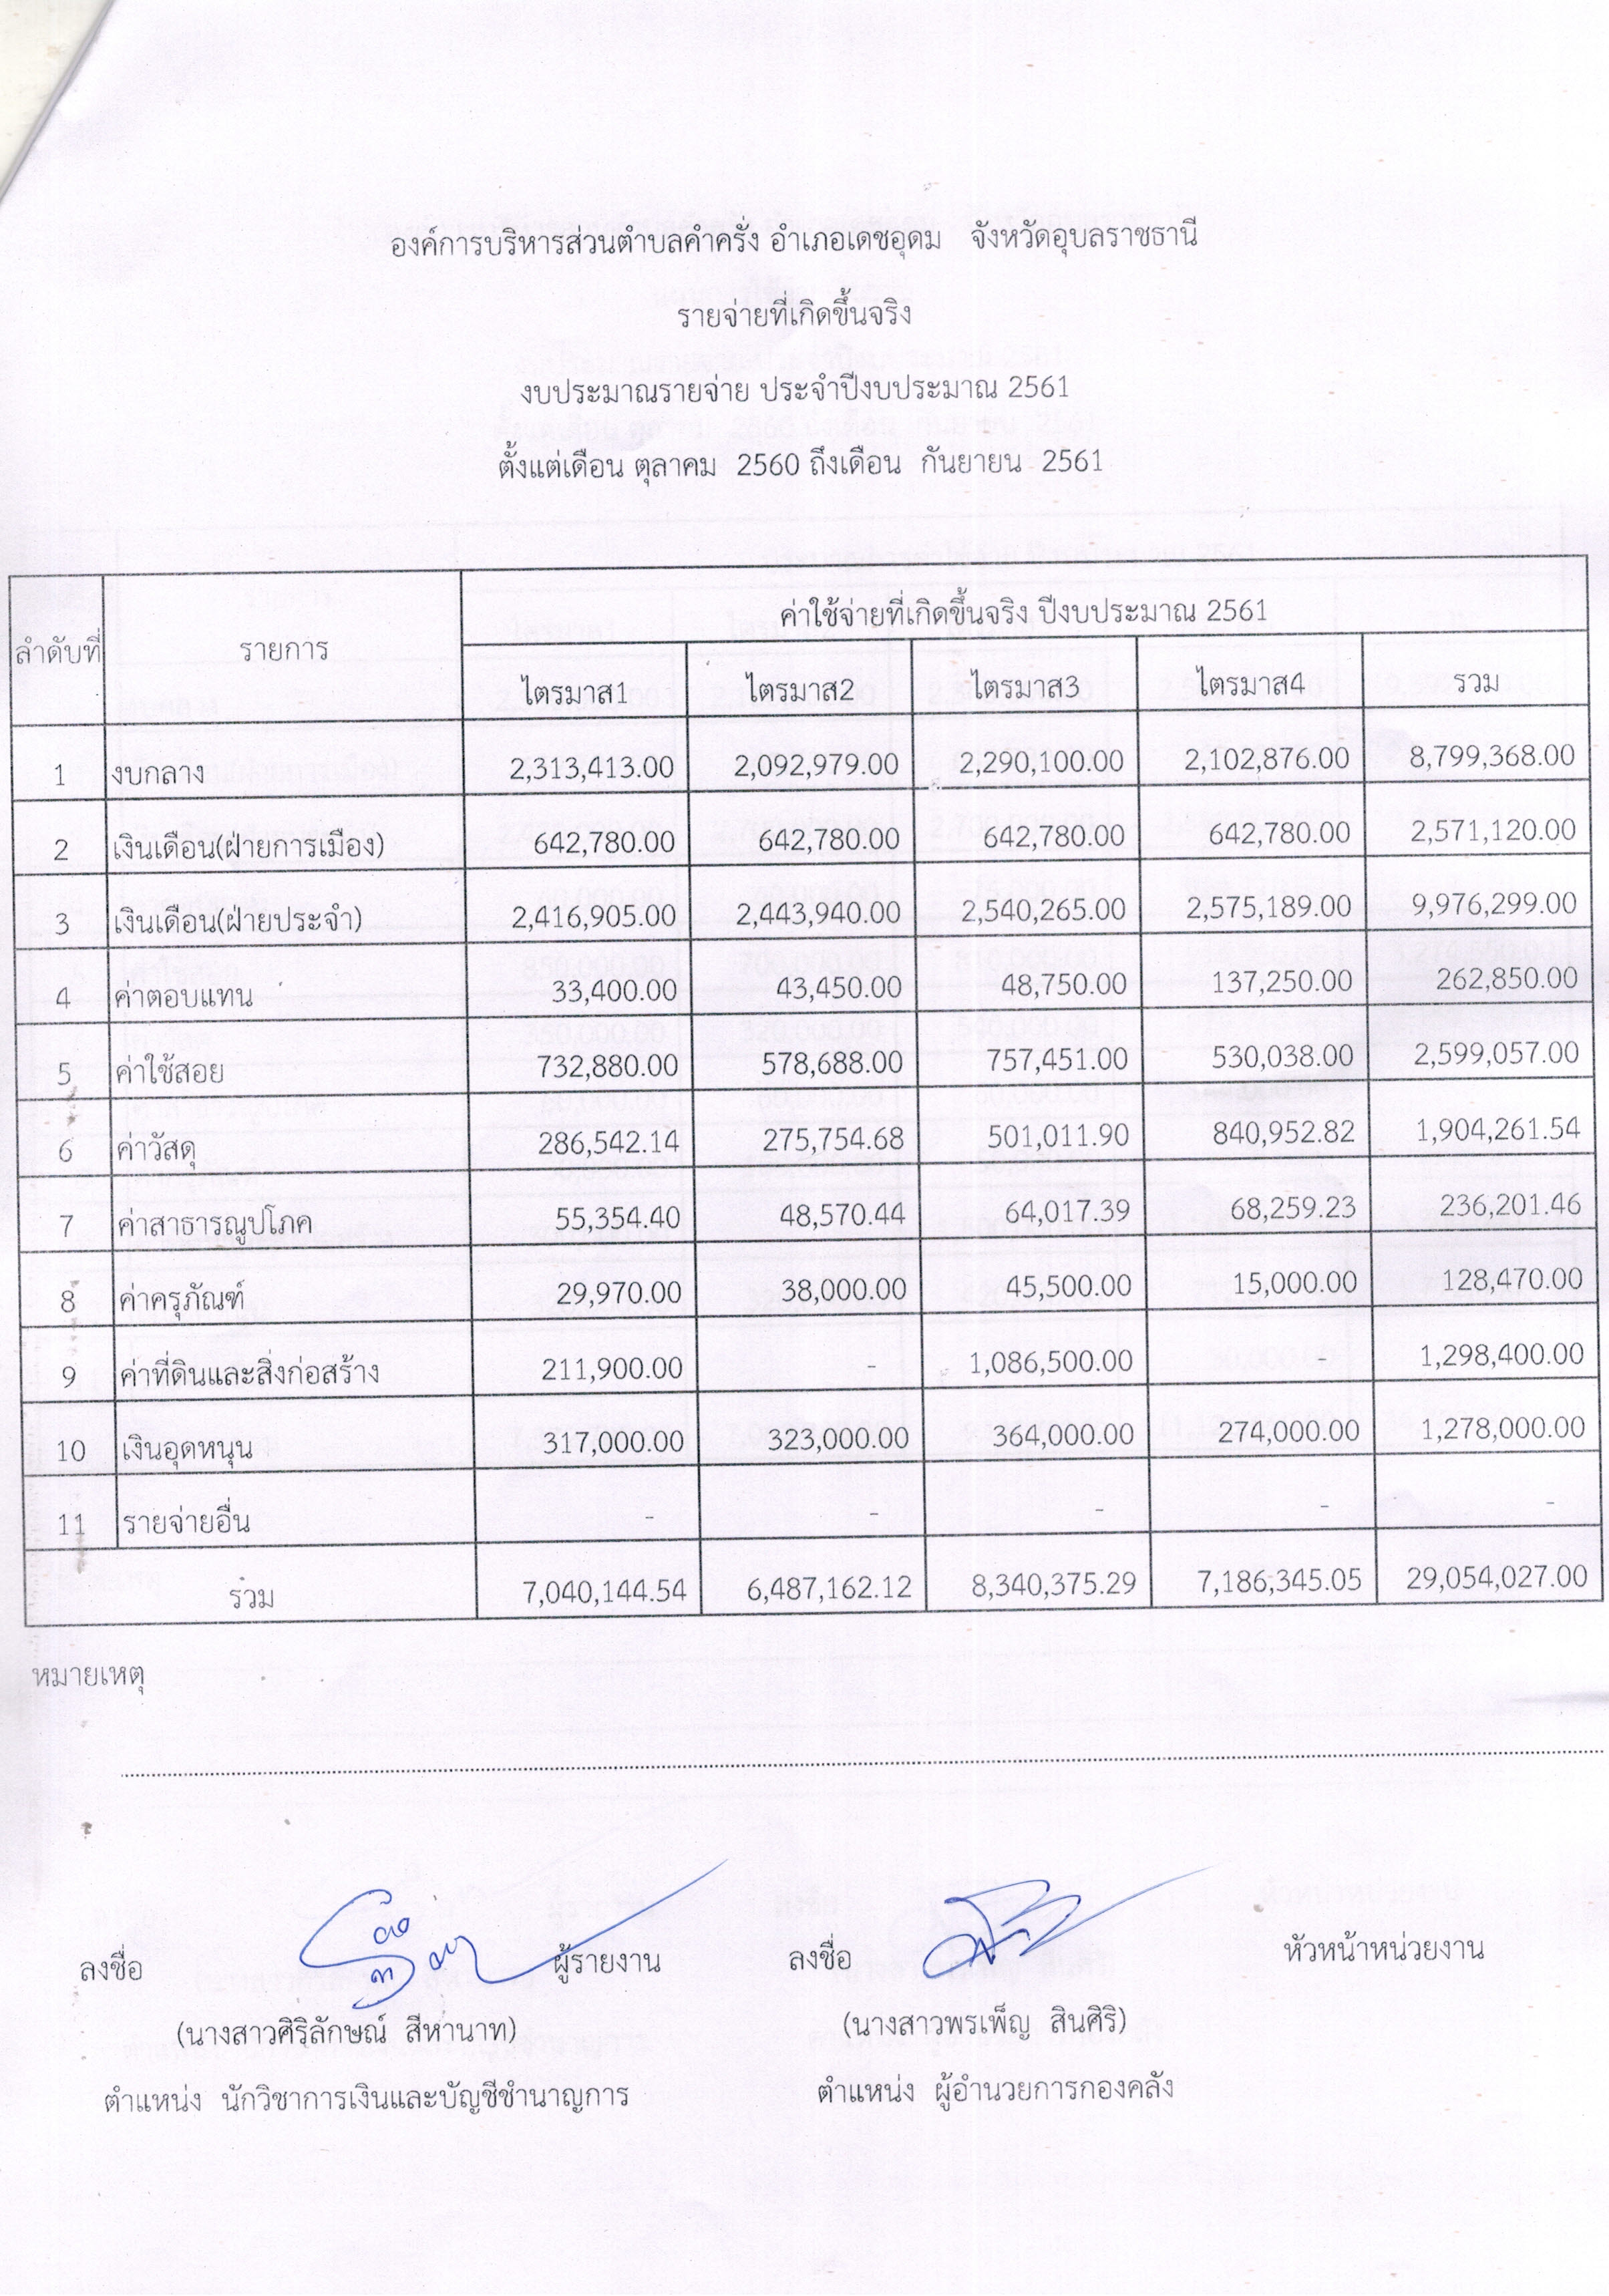 องค์การบริหารส่วนตำบลคำครั่ง อำเภอเดชอุดม จังหวัดอุบลราชธานี
รายจ่ายที่เกิดขึ้นจริง
งบประมาณรายจ่าย ประจำปีงบประมาณ 2561
ตั้งแต่เดือน ตุลาคม 2560 ถึงเดือน กันยายน 2561
ลำดับที่ รายการ ค่าใช้จ่ายที่เกิดขึ้นจริง ปีงบประมาณ 2561
ไตรมาส1 ไตรมาส2 ไตรมาส3 ไตรมาส4 รวม
1 งบกลาง 2,313,413.00 2,092,979.00 2,290,100.00 2,102,876.00 8,799,368.00
2 เงินเดือน(ฝ่ายการเมือง) 642,780.00 642,780.00 642,780.00 642,780.00 2,571,120.00
3 เงินเดือน(ฝ่ายประจำ) 2,416,905.00 2,443,940.00 2,540,265.00 2,575,189.00 9,976,299.00
4 ค่าตอบแทน 33,400.00 43,450.00 48,750.00 137,250.00 262,850.00
5 ค่าใช้สอย 732,880.00 578,688.00 757,451.00 530,038.00 2,599,057.00
6 ค่าวัสดุ 286,542.14 275,754.68 501,011.90 840,952.82 1,904,261.54
7 ค่าสาธารณูปโภค 55,354.40 48,570.44 64,017.39 68,259.23 236,201.46
8 ค่าครุภัณฑ์ 29,970.00 38,000.00 45,500.00 15,000.00 128,470.00
9 ค่าที่ดินและสิ่งก่อสร้าง 211,900.00 - 1,086,500.00 - 1,298,400.00
10 เงินอุดหนุน 317,000.00 323,000.00 364,000.00 274,000.00 1,278,000.00
11 รายจ่ายอื่น - - - - -
รวม 7,040,144.54 6,487,162.12 8,340,375.29 7,186,345.05 29,054,027.00
หมายเหตุ
ลงชื่อ ผู้รายงาน ลงชื่อ หัวหน้าหน่วยงาน
(นางสาวศิริลักษณ์ สีหานาท) (นางสาวพรเพ็ญ สินศิริ)
ตำแหน่ง นักวิชาการเงินและบัญชีชำนาญการ ตำแหน่ง ผู้อำนวยการกองคลัง